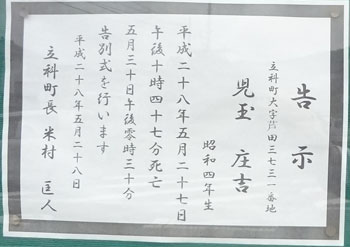 告示
立科町大字芦田三七三一番地
児玉 庄吉
昭和四年生
平成二十八年五月二十七日
午後十時四十七分死亡
五月三十日午後零時三十分
告別式を行います
平成二十八年五月二十八日
立科町長 米村 匡人